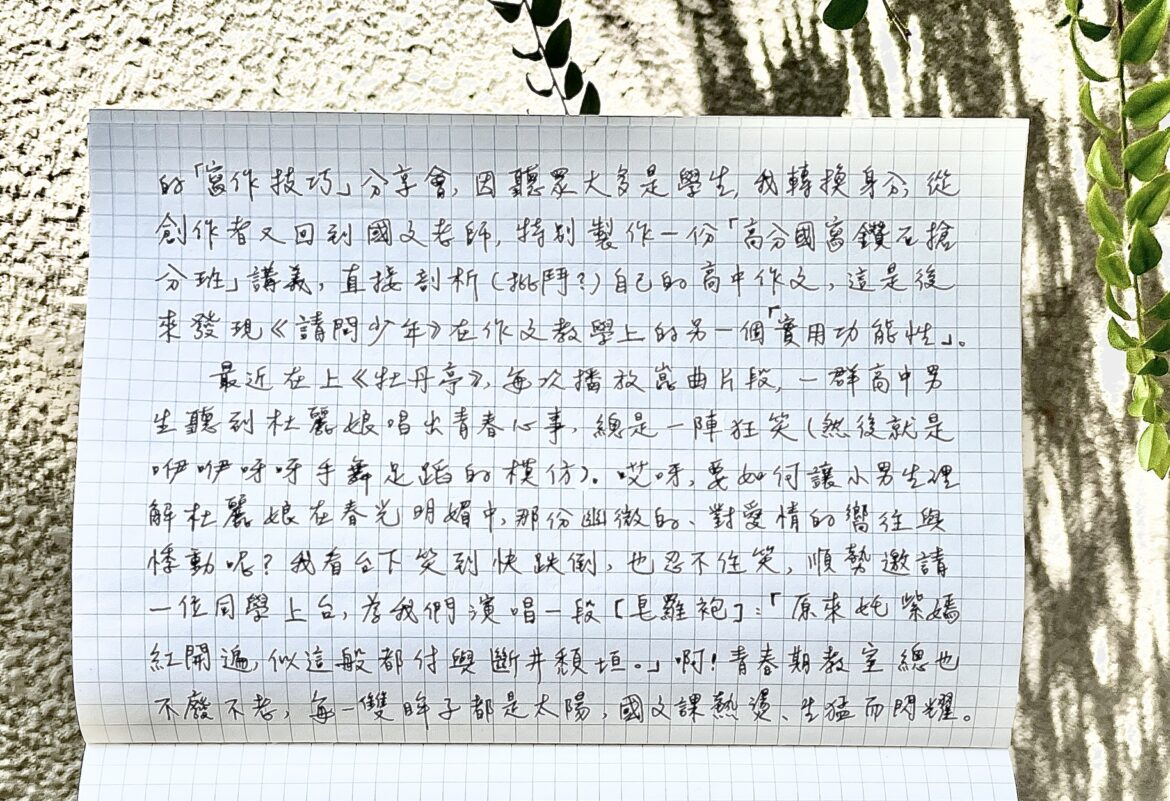 的「寫作技巧」分享會,因聽眾大多是學生,我轉換身分,從
創作者又回到國文老師,特別製作一份「高分國寫鑽石搶
分班」講義,直接剖析(批鬥?)自己的高中作文,這是後
來發現《請問少年》在作文教學上的另一個「實用功能性」。
最近在上《牡丹亭》,每次播放崑曲片段,一群高中男
生聽到杜麗娘唱出青春心事,總是一陣狂笑(然後就是
咿咿呀呀手舞足蹈的模仿)。哎呀,要如何讓小男生理
解杜麗娘在春光明媚中,那份幽微的、對愛情的嚮往與
悸動呢?我看台下笑到快跌倒,也忍不住笑,順勢邀請
一位同學上台,為我們演唱一段[皂羅袍]:「原來奼紫嫣
紅開遍,似這般都付與斷井頹垣。」啊!青春期教室總也
不廢不老,每一雙眸子都是太陽,國文課熱燙、生猛而閃耀。